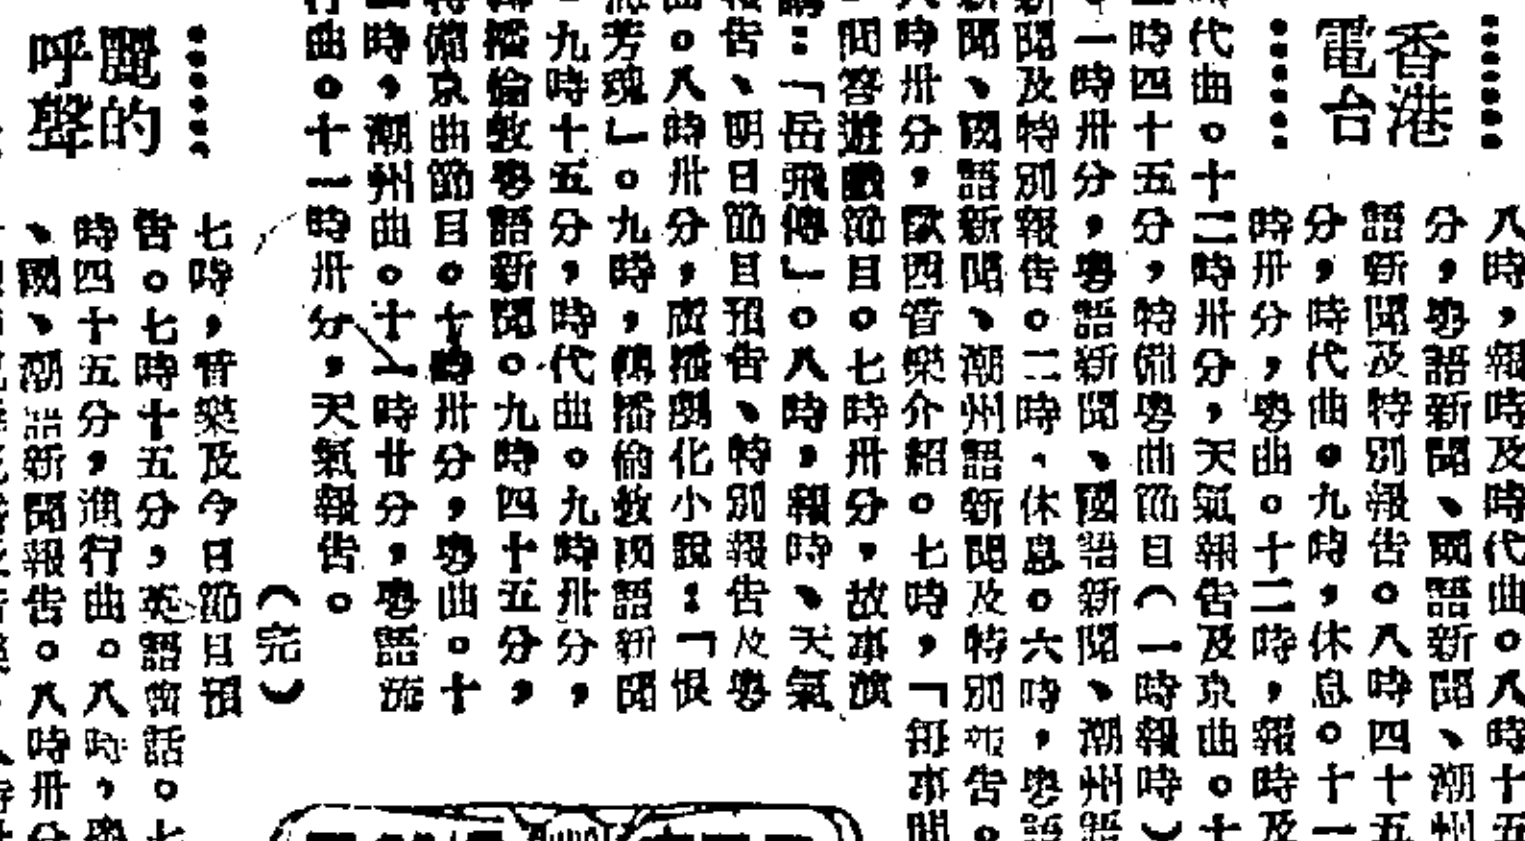 香港
電台
八時，報時及時代曲。八時十五
分，粵語新聞、國語新聞、潮州
語新聞及特別報告。八時四十五
分，時代曲。九時，休息。十一
時卅分，粵曲。十二時，報時及
代曲。十二時卅分，天氣報告及京曲。十
時四十五分，特備粵曲節目（一時報時）
一時卅分，粵語新聞、國語新聞、潮州語
新聞及特別報告。二時，休息。六時，粵語
新聞、國語新聞、潮州語新聞及特別報告。
時卅分，歐西管樂介紹。七時，「每事問
問答遊戲節目。七時卅分，故事演
講：「岳飛傳」。八時，報時、天氣
報告、明日節目預告、特別報告及粵
曲。八時卅分，廣播劇化小說：「恨
海芳魂」。九時，轉播倫敦國語新聞
。九時十五分，時代曲。九時卅分，
播倫敦粵語新聞。九時四十五分，
特備京曲節目。十時卅分，粵曲。十
一時，潮州曲。十一時廿分，粵語流
行曲。十一時卅分，天氣報告。
（完）
麗的
呼聲
七時，音樂及今日節目預
告。七時十五分，英語會話。七
時四十五分，進行曲。八時，粵
、國、潮語新聞報告。八時卅分